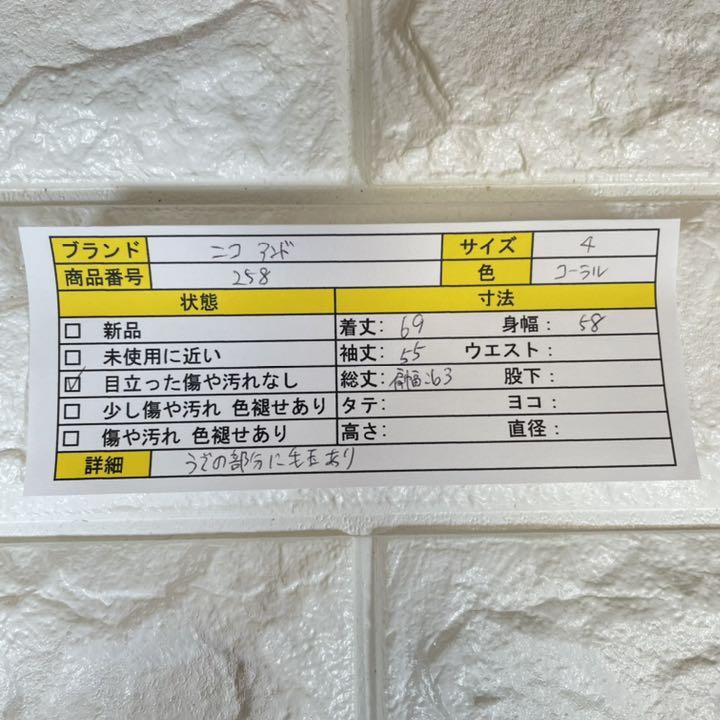 ブランド ニコ アンド サイズ 4
商品番号 258 色 コーラル
状態 寸法
☐ 新品 着丈: 69 身幅: 58
☐ 未使用に近い 袖丈: 55 ウエスト:
☑ 目立った傷や汚れなし 総丈: 肩幅:63 股下:
☐ 少し傷や汚れ 色褪せあり タテ: ヨコ:
☐ 傷や汚れ 色褪せあり 高さ: 直径:
詳細 うでの部分に毛玉あり